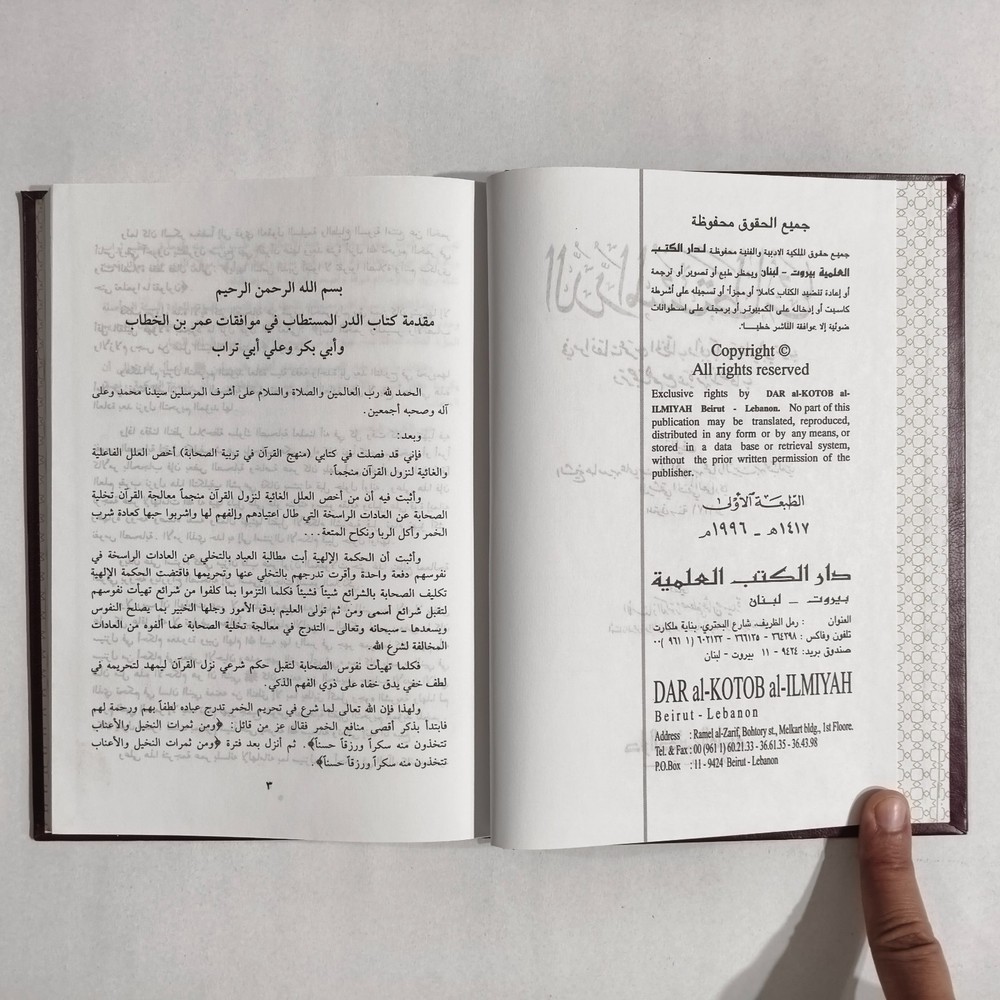 جميع الحقوق محفوظة
جميع حقوق الملكية الادبية والفنية محفوظة لدار الكتب
العلمية بيروت - لبنان ويحظر طبع أو تصوير أو ترجمة
أو إعادة تنضيد الكتاب كاملاً أو مجزأ أو تسجيله على أشرطة
كاسيت أو إدخاله على الكمبيوتر أو برمجته على اسطوانات
ضوئية إلا بموافقة الناشر خطيـاً.
Copyright ©
All rights reserved
Exclusive rights by DAR al-KOTOB al-
ILMIYAH Beirut - Lebanon. No part of this
publication may be translated, reproduced,
distributed in any form or by any means, or
stored in a data base or retrieval system,
without the prior written permission of the
publisher.
الطبعة الأولى
١٤١٧هـ - ١٩٩٦م
دار الكتب العلمية
بيروت - لبنان
العنوان : رمل الظريف، شارع البحتري، بناية ملكارت
تلفون وفاكس : ٣٦٤٣٩٨ - ٣٦٦١٣٥ - ٦٠٢١٣٣ (١ ٩٦١) ٠٠
صندوق بريد: ٩٤٢٤ - ١١ بيروت - لبنان
DAR al-KOTOB al-ILMIYAH
Beirut - Lebanon
Address : Ramel al-Zarif, Bohtory st., Melkart bldg., 1st Floore.
Tel. & Fax : 00 (961 1) 60.21.33 - 36.61.35 - 36.43.98
P.O.Box : 11 - 9424 Beirut - Lebanon
بسم الله الرحمن الرحيم
مقدمة كتاب الدر المستطاب في موافقات عمر بن الخطاب
وأبي بكر وعلي أبي تراب
الحمد لله رب العالمين والصلاة والسلام على أشرف المرسلين سيدنا محمد وعلى
آله وصحبه أجمعين.
وبعد:
فإني قد فصلت في كتابي (منهج القرآن في تربية الصحابة) أخص العلل الفاعلية
والغائية لنزول القرآن منجماً.
وأثبت فيه أن من أخص العلل الغائية لنزول القرآن منجماً معالجة القرآن تخلية
الصحابة عن العادات الراسخة التي طال اعتيادهم وإلفهم لها واشربوا حبها كعادة شرب
الخمر وأكل الربا ونكاح المتعة...
وأثبت أن الحكمة الإلهية أبت مطالبة العباد بالتخلي عن العادات الراسخة في
نفوسهم دفعة واحدة وأقرت تدرجهم بالتخلي عنها وتحريمها فاقتضت الحكمة الإلهية
تكليف الصحابة بالشرائع شيئاً فشيئاً فكلما التزموا بما كلفوا من شرائع تهيأت نفوسهم
لتقبل شرائع أسمى ومن ثم تولى العليم بدق الأمور وجلها الخبير بما يصلح النفوس
ويسعدها - سبحانه وتعالى - التدرج في معالجة تخلية الصحابة عما ألفوه من العادات
المخالفة لشرع الله.
فكلما تهيأت نفوس الصحابة لتقبل حكم شرعي نزل القرآن ليمهد لتحريمه في
لطف خفي يدق خفاه على ذوي الفهم الذكي.
ولهذا فإن الله تعالى لما شرع في تحريم الخمر تدرج عباده لطفاً بهم ورحمة لهم
فابتدأ بذكر أقصى منافع الخمر فقال عز من قائل: ﴿ومن ثمرات النخيل والأعناب
تتخذون منه سكراً ورزقاً حسناً﴾. ثم أنزل بعد فترة ﴿ومن ثمرات النخيل والأعناب
تتخذون منه سكراً ورزقاً حسناً﴾.
٣